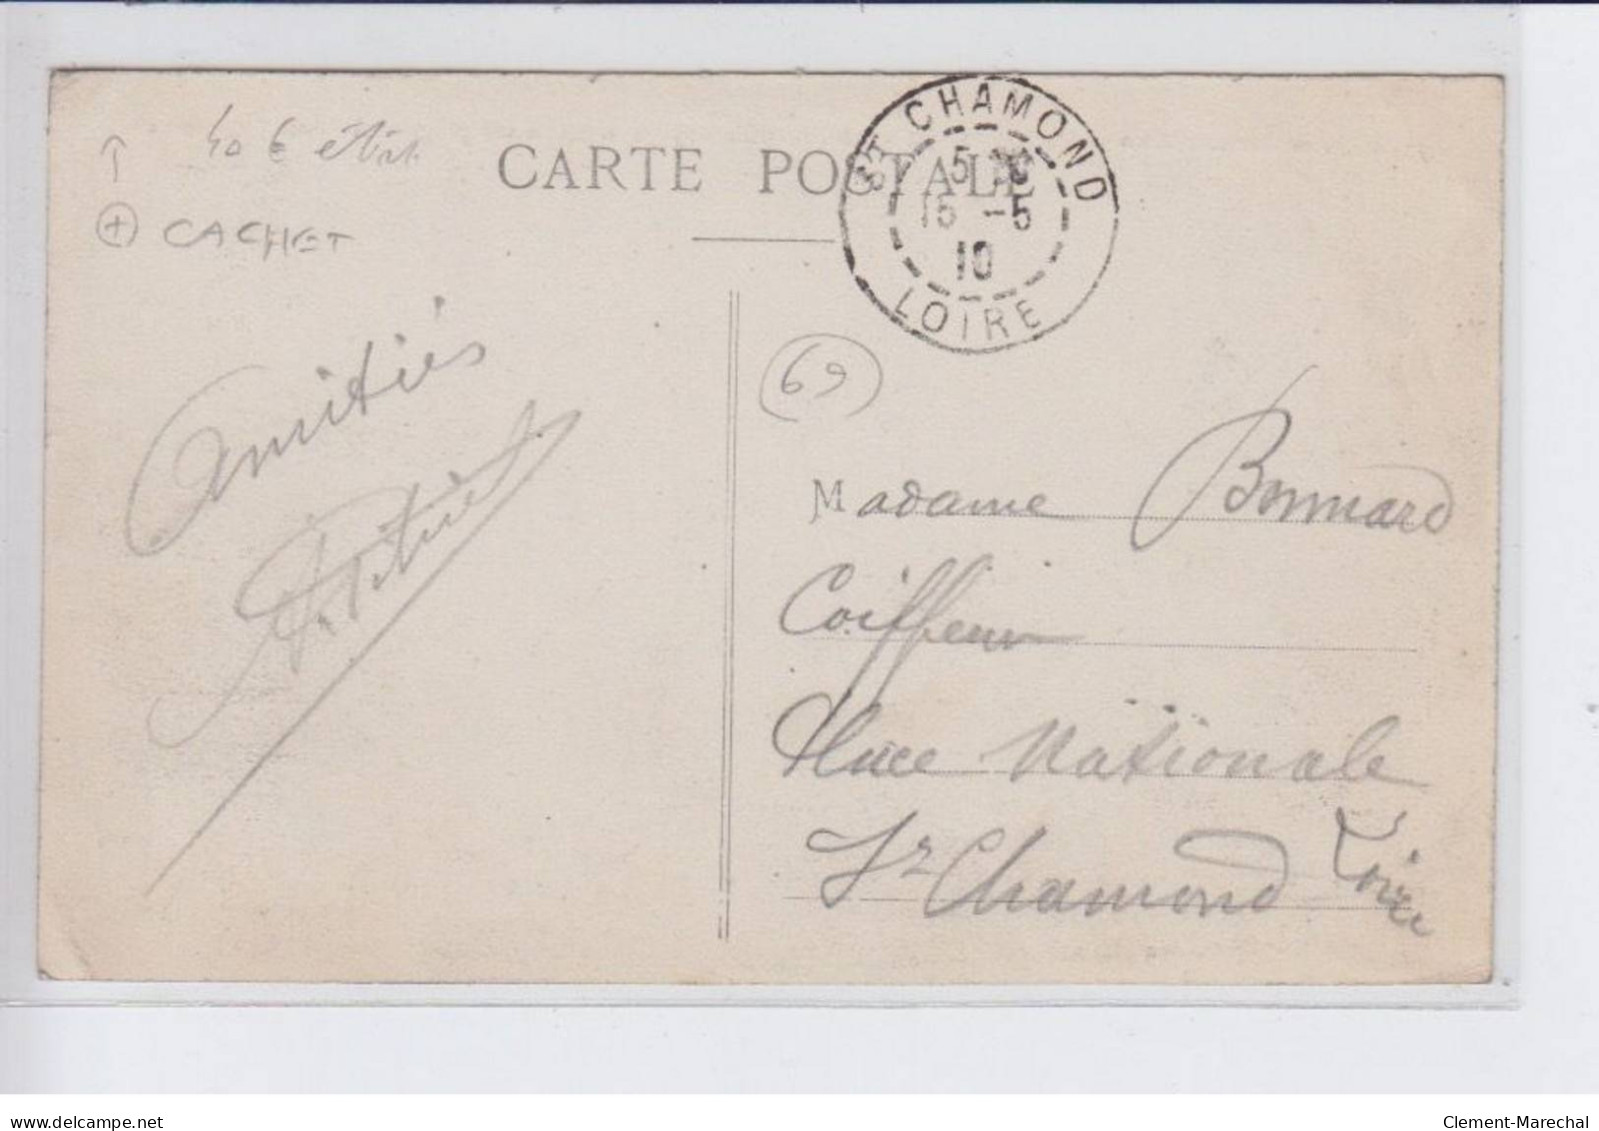 40 €
CARTE POSTALE
+ CACHET
ST CHAMOND
5
15 -5
10
LOIRE
69
Amitiés
Madame Bonnard
Coiffeur
Place Nationale
St Chamond Loire
delcampe.net
Clement-Marechal